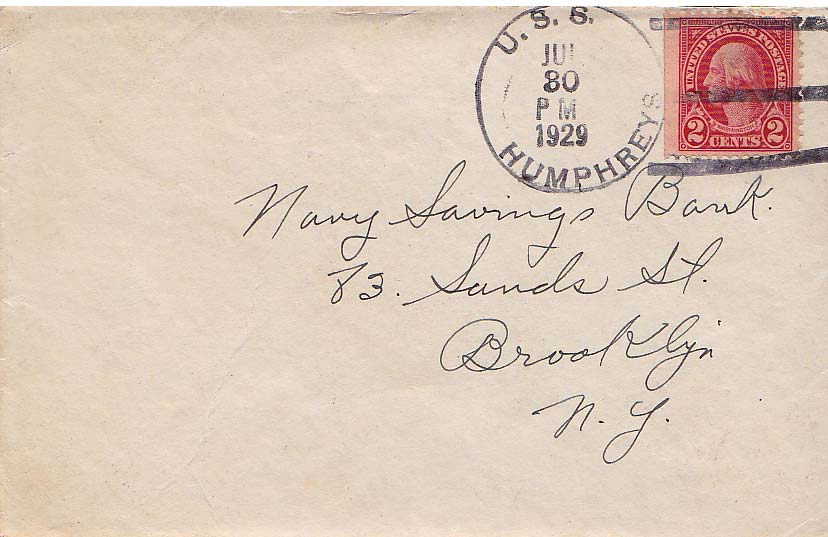 U.S.S.
JUL
30
PM
1929
HUMPHREYS
UNITED STATES POSTAGE
2 CENTS 2
Navy Savings Bank.
83. Sands St.
Brooklyn
N.Y.